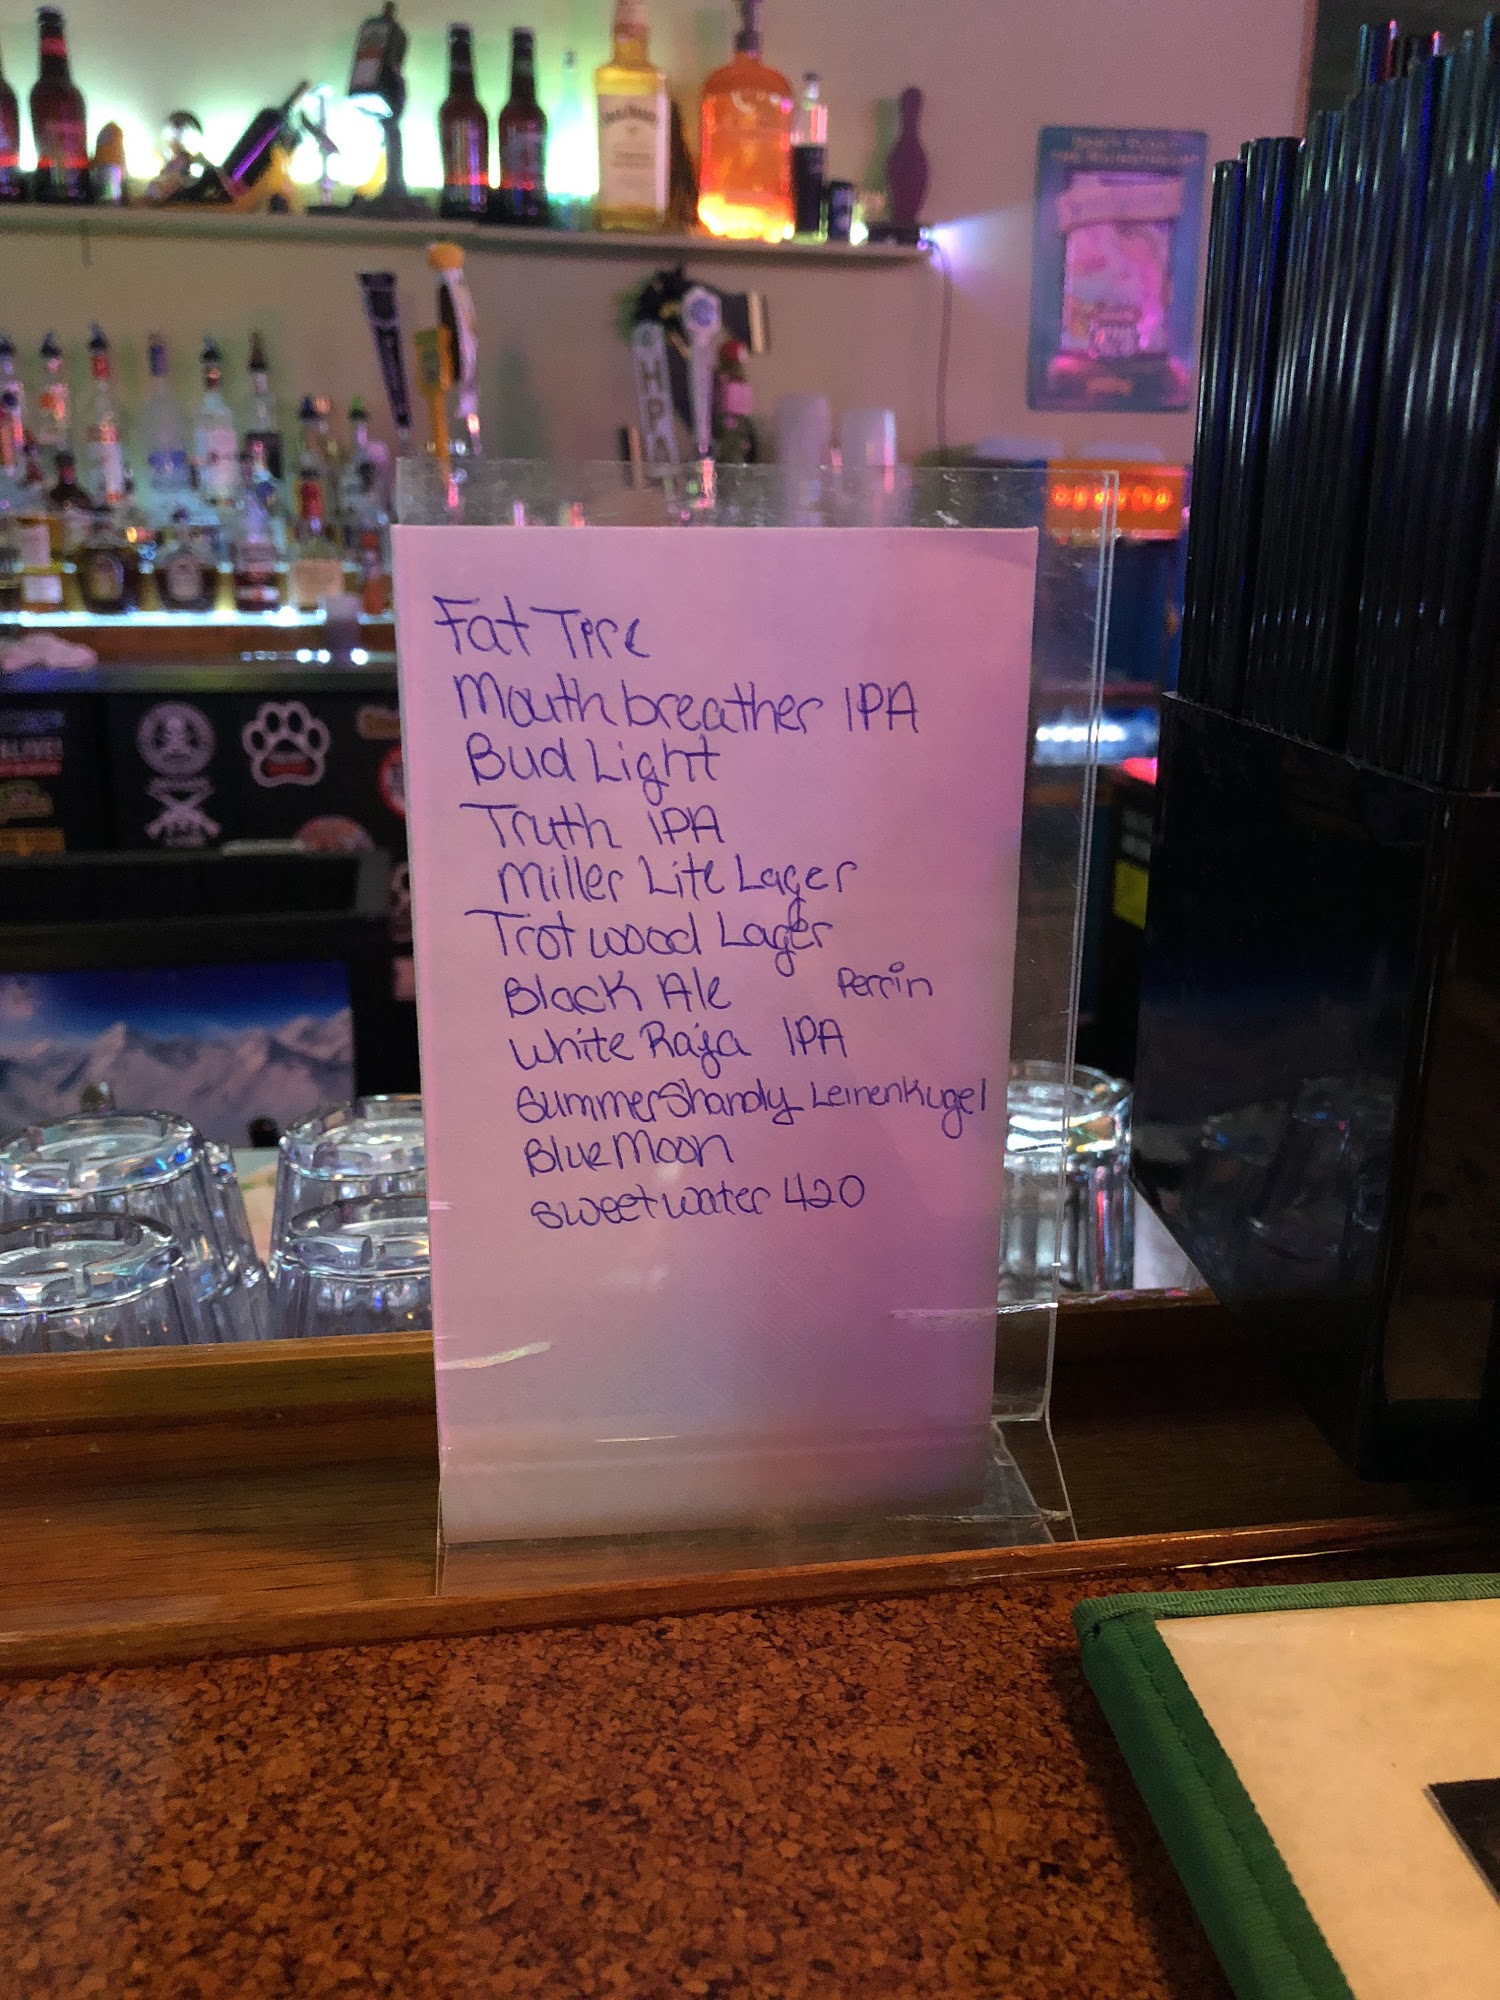 Fat Tire
Mouthbreather IPA
Bud Light
Truth IPA
Miller Lite Lager
Trotwood Lager
Black Ale Perrin
White Rajja IPA
Summer Shandy Leinenkugel
Blue Moon
Sweetwater 420